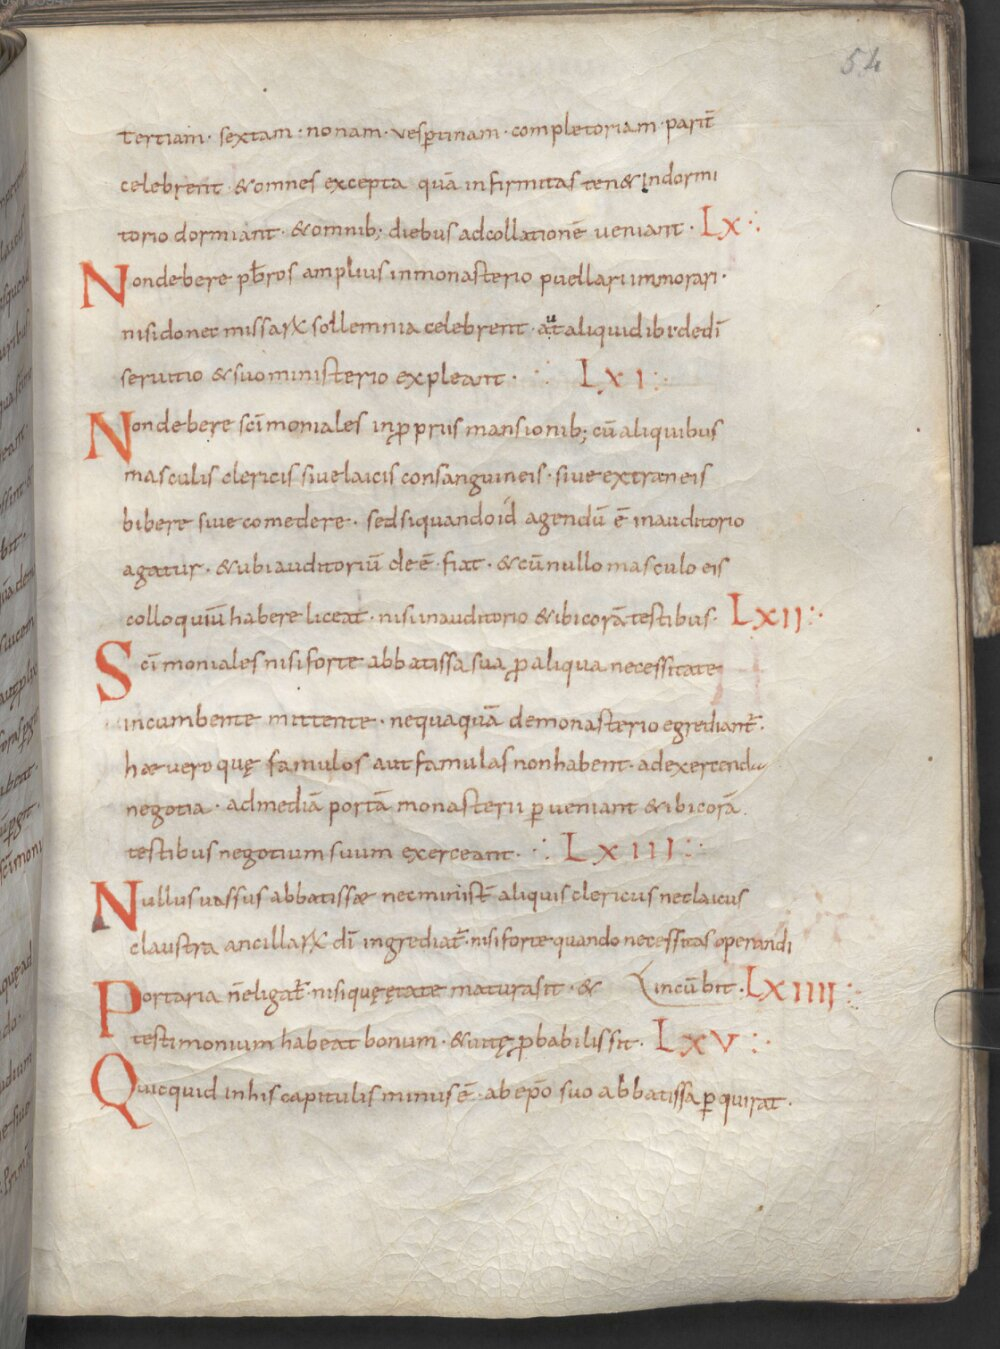 54
tertiam · sextam · nonam · vesptinam · completoriam · parit̄
celebrent · & omnes excepta quā infirmitas ten& Indormi
torio dormiant · & omnib; diebus adcollationē veniant · LX
Nondebere pb̄ros amplius inmonasterio puellari inmorari ·
nisi donec missaꝝ sollemnia celebrent · aut aliquid ibi dedī
seruitio & suo ministerio expleant · LXI
Nondebere scīmoniales inꝓpriis mansionib; cū aliquibus
masculis clericis siue laicis consanguineis · siue extraneis
bibere siue comedere · sed siquando id agendū ē inauditorio
agatur · & ubi auditoriū deē · fiat · & cū nullo masculo eis
colloquiū habere liceat · nisi inauditorio & ibi corā testibus · LXII
Scīmoniales nisi forte abbatissa sua ꝓ aliqua necessitate
incumbente mittente · nequaquā demonasterio egrediant̄ ·
hae vero quę famulos aut famulas non habent · ad exercenda
negotia · ad mediā portā monasterii ꝑveniant & ibi corā
testibus negotium suum exerceant · LXIII
Nullus uassus abbatissae nec minist̄ aliquis clericus nec laicus
claustra ancillaꝝ dī ingrediat̄ · nisi forte quando necessitas operandi
incūbit · LXIIII
Portaria n̄ eligat̄ · nisi quę ętate matura sit · &
testimonium habeat bonum · & uitę ꝓbabilis sit · LXV
Quicquid in his capitulis minus ē · ab epō suo abbatissa ꝑquirat ·